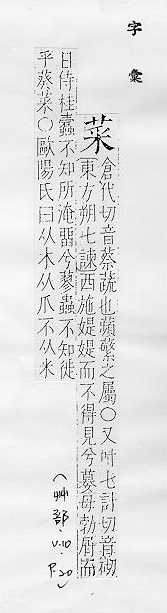 字彙
菜
倉代切音蔡蔬也蘋蘩之屬〇又叶七計切音砌
東方朔七諫西施媞媞而不得見兮䔲母勃屑而
日侍桂蠹不知所淹留兮蓼蟲不知徙
乎葵菜〇歐陽氏曰从木从爪不从米
(艸部, V.10, P.20)